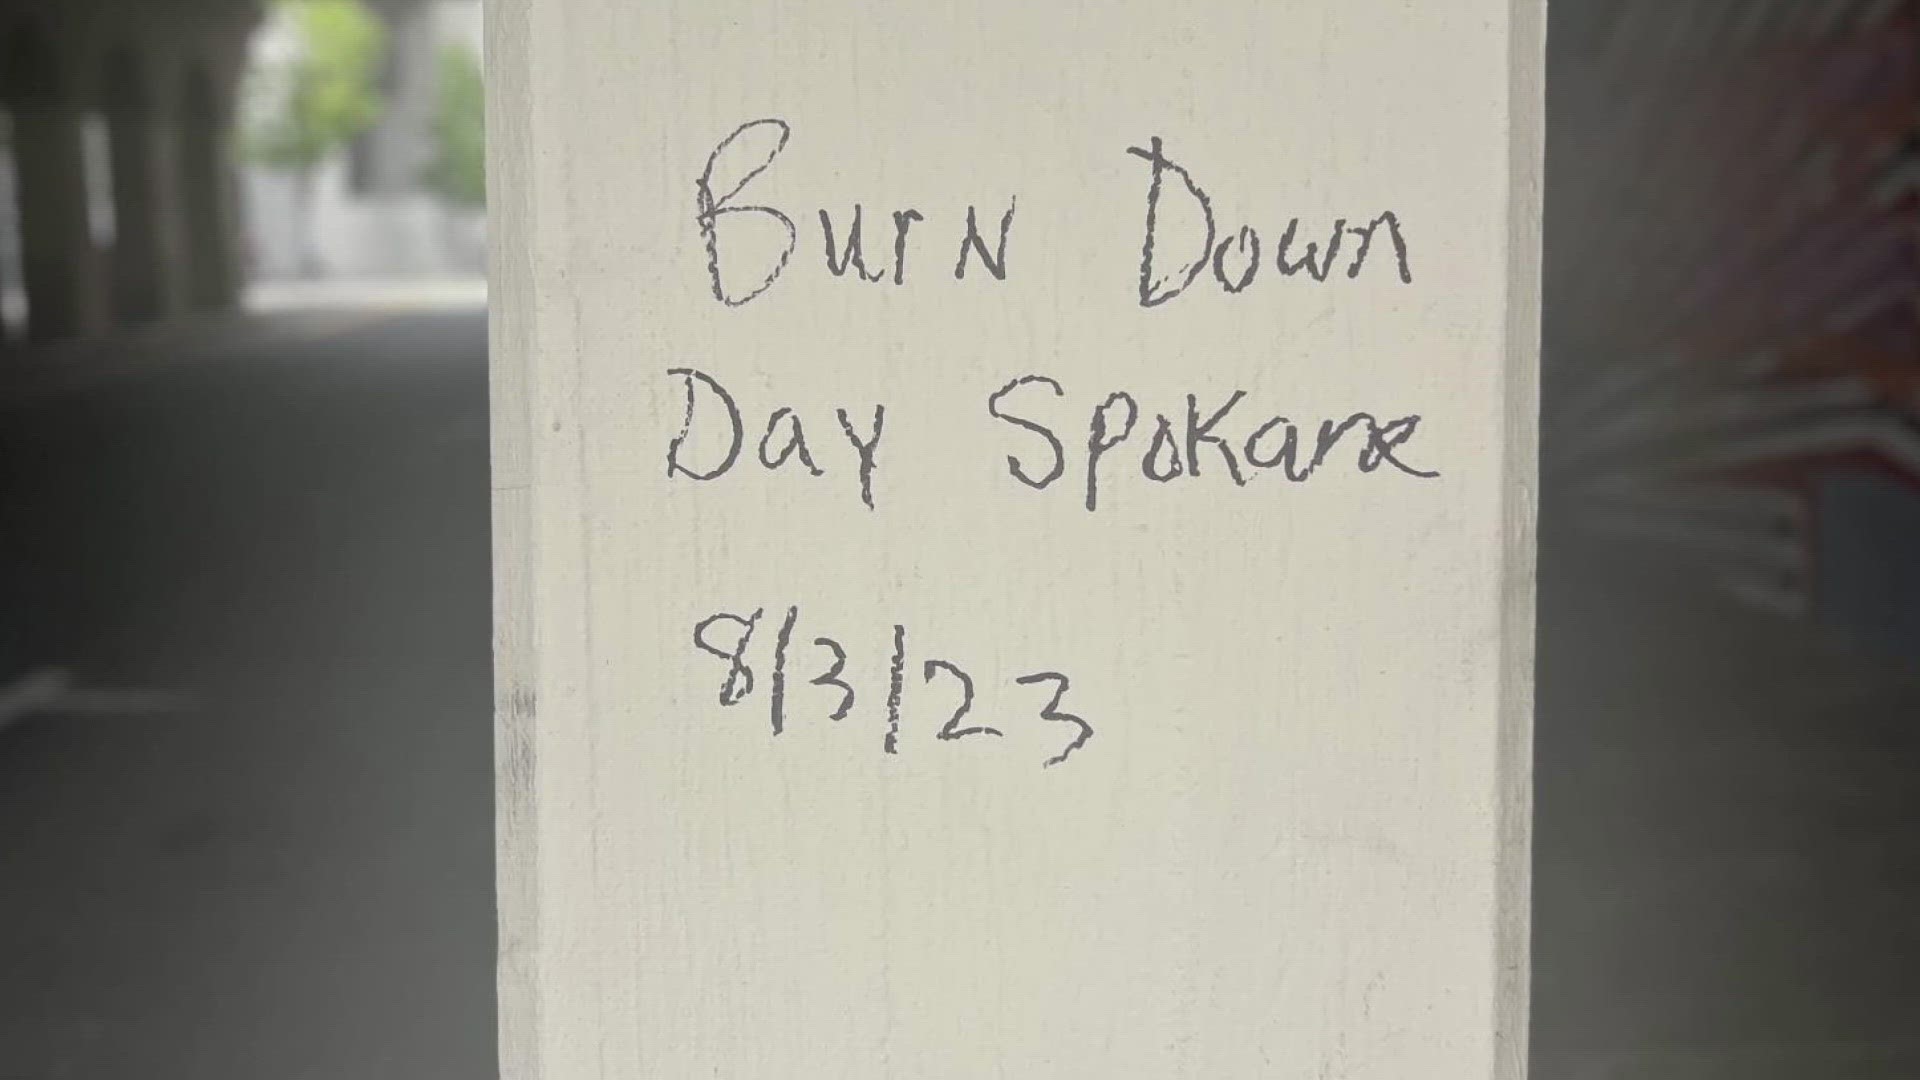 Burn Down
Day Spokane
8/3/23